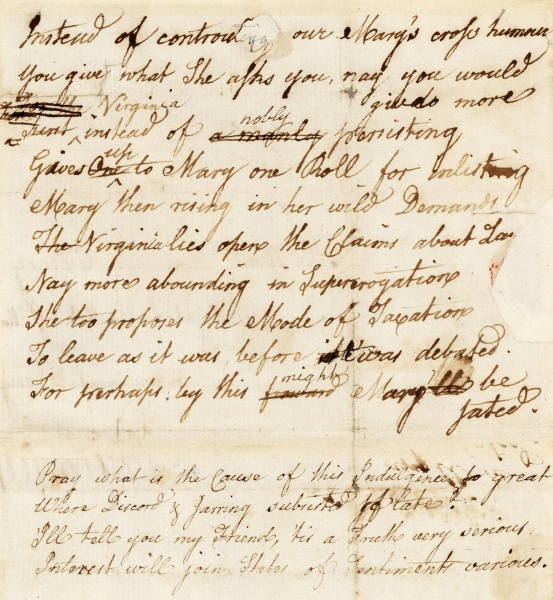 Instead of controuling our Mary's cross humour
You give what She asks you, nay you would
give do more
Virginia
First, instead of a manly nobly persisting
Gives One up to Mary one Roll for enlisting
Mary then rising in her wild Demands
The Virginia lies open the Claims about
Nay more abounding in Supererogation
She too proposes the Mode of Taxation
To leave as it was, before it was debated.
For perhaps, by this might Mary be
sated.
Pray what is the Cause of this Indulgence so great
Where Discord & Jarring subsisted of late?
I'll tell you my Friend, 'tis a Truth very serious
Interest will join States of Sentiments various.